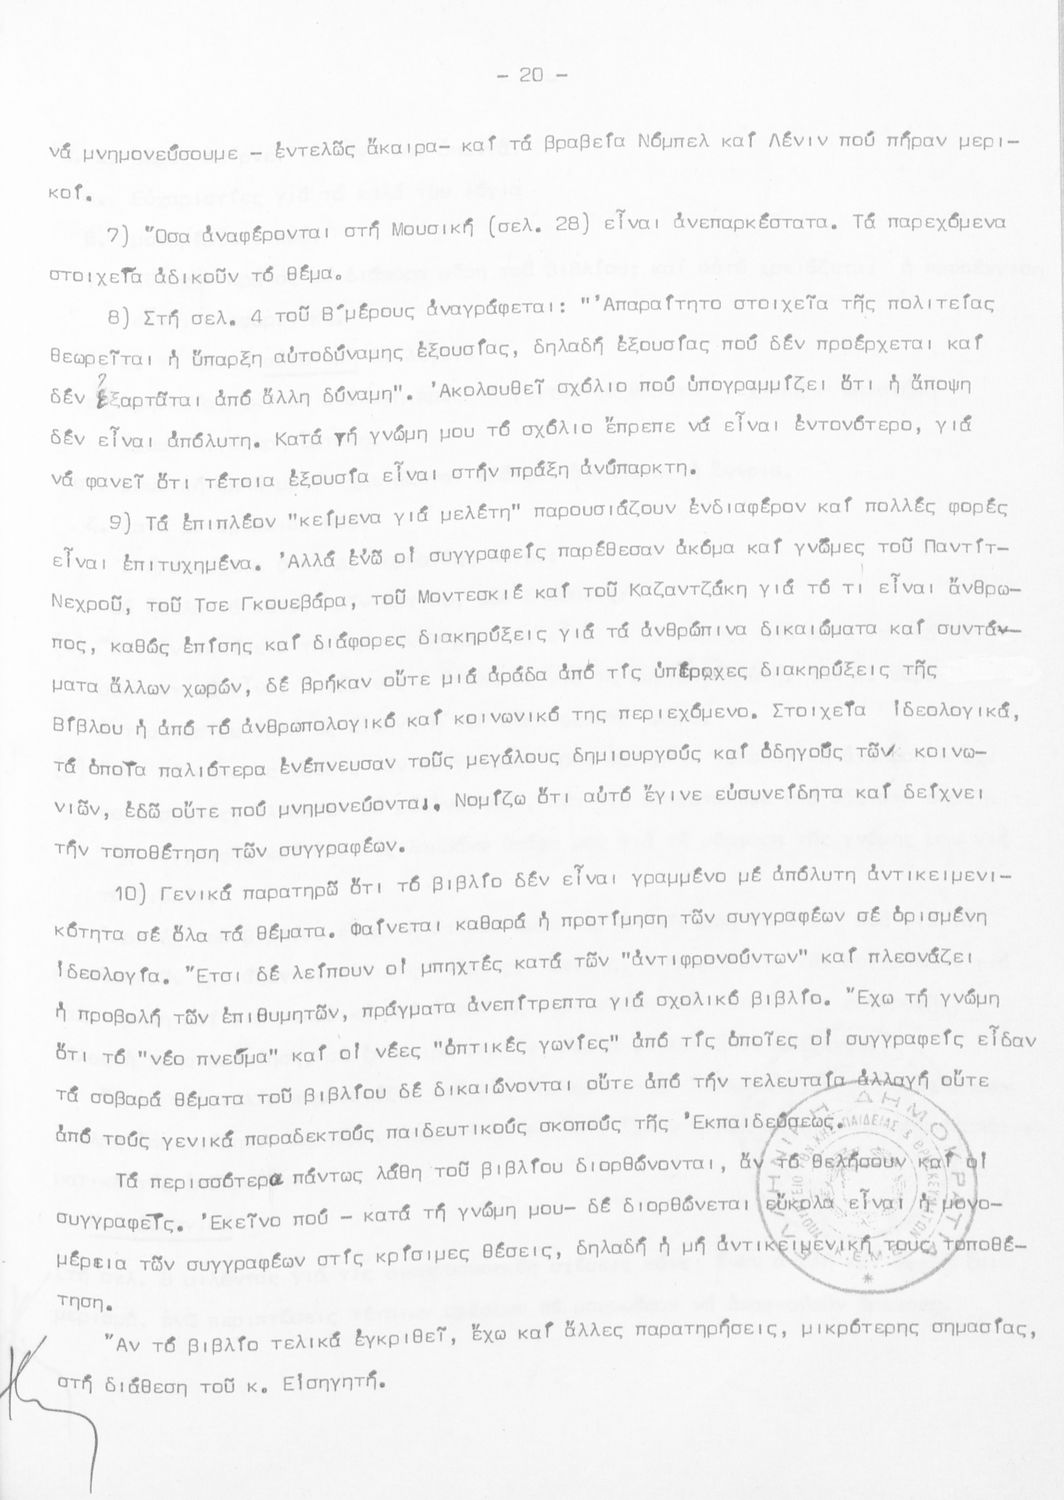 - 20 -
νά μνημονεύσουμε - ἐντελῶς ἄκαιρα- καί τά βραβεῖα Νόμπελ καί Λένιν πού πῆραν μερι-
κοί.
7) Ὅσα ἀναφέρονται στή Μουσική (σελ. 28) εἶναι ἀνεπαρκέστατα. Τά παρεχόμενα
στοιχεῖα ἀδικοῦν τό θέμα.
8) Στή σελ. 4 τοῦ Β΄μέρους ἀναγράφεται: "Ἀπαραίτητο στοιχεῖα τῆς πολιτείας
θεωρεῖται ἡ ὕπαρξη αὐτοδύναμης ἐξουσίας, δηλαδή ἐξουσίας πού δέν προέρχεται καί
δέν ἐξαρτᾶται ἀπό ἄλλη δύναμη". Ἀκολουθεῖ σχόλιο πού ὑπογραμμίζει ὅτι ἡ ἄποψη
δέν εἶναι ἀπόλυτη. Κατά τή γνώμη μου τό σχόλιο ἔπρεπε νά εἶναι ἐντονότερο, γιά
νά φανεῖ ὅτι τέτοια ἐξουσία εἶναι στήν πράξη ἀνύπαρκτη.
9) Τά ἐπιπλέον "κείμενα γιά μελέτη" παρουσιάζουν ἐνδιαφέρον καί πολλές φορές
εἶναι ἐπιτυχημένα. Ἀλλά ἐνῶ οἱ συγγραφεῖς παρέθεσαν ἀκόμα καί γνῶμες τοῦ Παντίτ-
Νεχροῦ, τοῦ Τσε Γκουεβάρα, τοῦ Μοντεσκιέ καί τοῦ Καζαντζάκη γιά τό τι εἶναι ἄνθρω-
πος, καθώς ἐπίσης καί διάφορες διακηρύξεις γιά τά ἀνθρώπινα δικαιώματα καί συντάγ-
ματα ἄλλων χωρών, δέ βρῆκαν οὔτε μιά ἀράδα ἀπό τίς ὑπέροχες διακηρύξεις τῆς
Βίβλου ἤ ἀπό τό ἀνθρωπολογικό καί κοινωνικό της περιεχόμενο. Στοιχεῖα ἰδεολογικά,
τά ὁποῖα παλιότερα ἐνέπνευσαν τοῦς μεγάλους δημιουργούς καί ὁδηγούς τῶν κοινω-
νιῶν, ἐδῶ οὔτε πού μνημονεύονται. Νομίζω ὅτι αὐτό ἔγινε εὐσυνείδητα καί δείχνει
τήν τοποθέτηση τῶν συγγραφέων.
10) Γενικά παρατηρῶ ὅτι τό βιβλίο δέν εἶναι γραμμένο μέ ἀπόλυτη ἀντικειμενι-
κότητα σέ ὅλα τά θέματα. Φαίνεται καθαρά ἡ προτίμηση τῶν συγγραφέων σέ ὁρισμένη
ἰδεολογία. Ἔτσι δέ λείπουν οἱ μπηχτές κατά τῶν "ἀντιφρονούντων" καί πλεονάζει
ἡ προβολή τῶν ἐπιθυμητῶν, πράγματα ἀνεπίτρεπτα γιά σχολικό βιβλίο. Ἔχω τή γνώμη
ὅτι τό "νέο πνεῦμα" καί οἱ νέες "ὀπτικές γωνίες" ἀπό τίς ὁποῖες οἱ συγγραφεῖς εἶδαν
τά σοβαρά θέματα τοῦ βιβλίου δέ δικαιώνονται οὔτε ἀπό τήν τελευταία ἀλλαγή οὔτε
ἀπό τούς γενικά παραδεκτούς παιδευτικούς σκοπούς τῆς Ἐκπαιδεύσεως.
Τά περισσότερα πάντως λάθη τοῦ βιβλίου διορθώνονται, ἄν τό θελήσουν καί οἱ
συγγραφεῖς. Ἐκεῖνο πού - κατά τή γνώμη μου- δέ διορθώνεται εὔκολα εἶναι ἡ μονο-
μέρεια τῶν συγγραφέων στίς κρίσιμες θέσεις, δηλαδή ἡ μή ἀντικειμενική τους τοποθέ-
τηση.
Ἄν τό βιβλίο τελικά ἐγκριθεῖ, ἔχω καί ἄλλες παρατηρήσεις, μικρότερης σημασίας,
στή διάθεση τοῦ κ. Εἰσηγητή.
ΕΛΛΗΝΙΚΗ ΔΗΜΟΚΡΑΤΙΑ